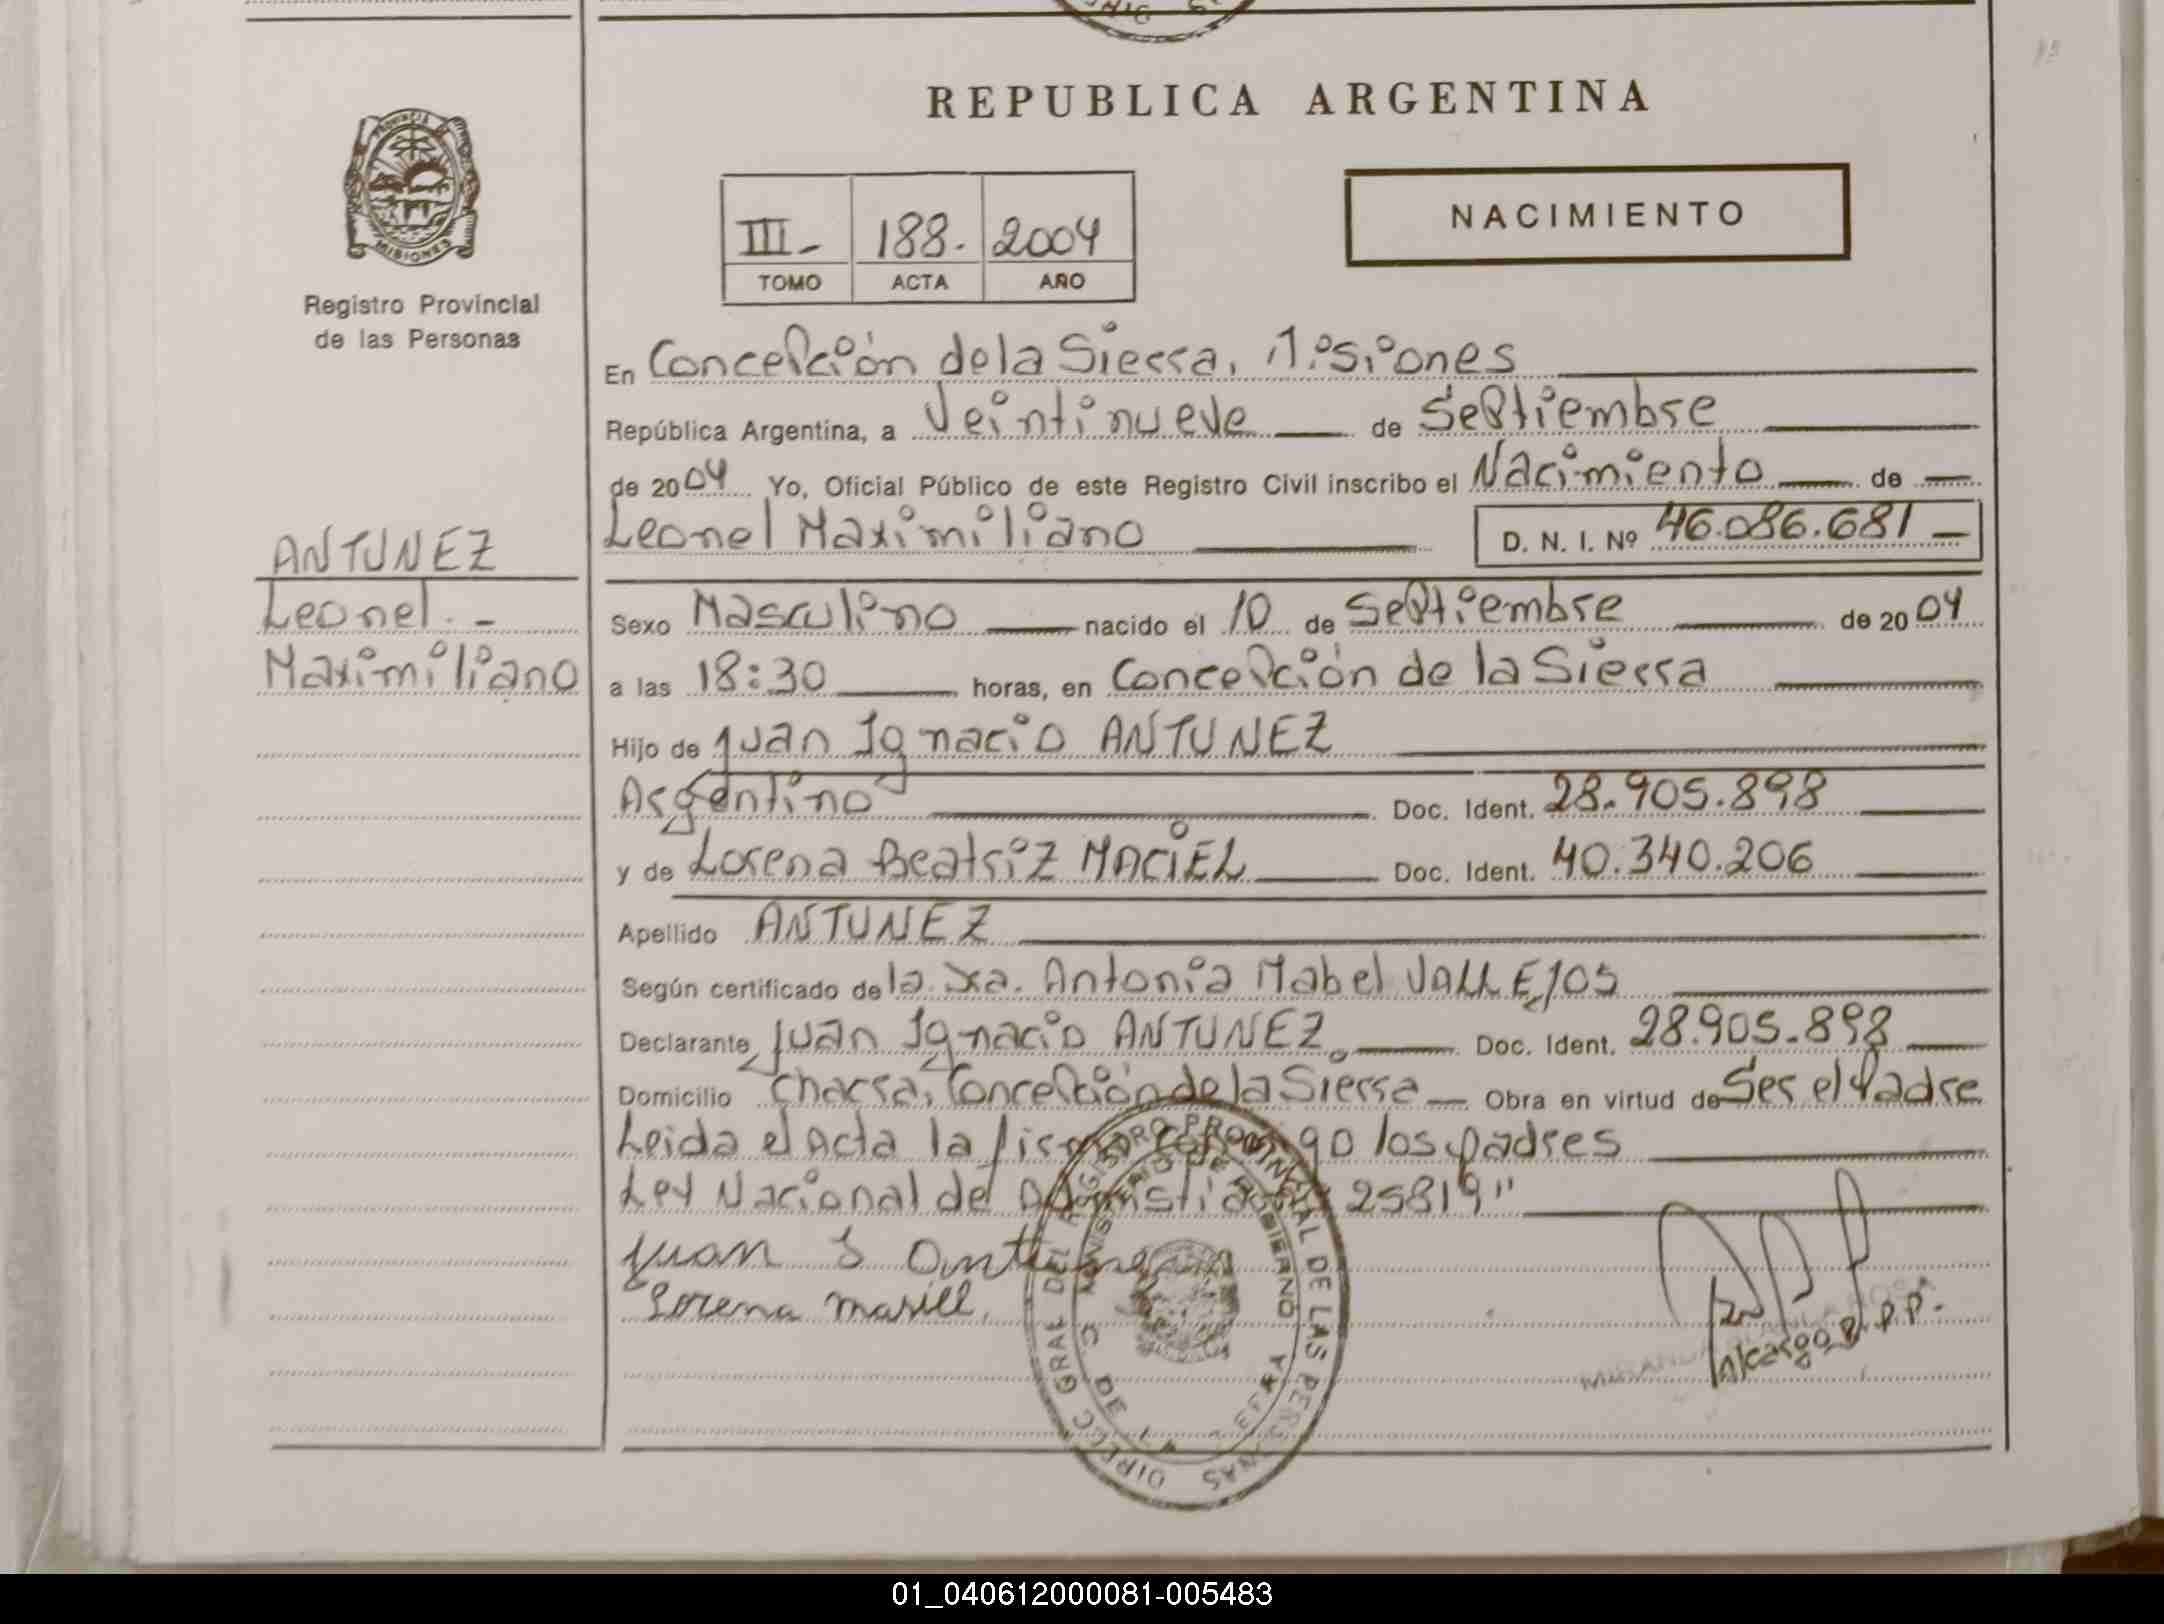 REPUBLICA ARGENTINA
PROVINCIA DE
MISIONES
Registro Provincial
de las Personas
III- 188- 2004
TOMO ACTA AÑO
NACIMIENTO
En Concepción de la Sierra, Misiones
República Argentina, a Veintinueve de Septiembre
de 2004 Yo, Oficial Público de este Registro Civil inscribo el Nacimiento de
Leonel Maximiliano D. N. I. Nº 46.086.681
ANTUNEZ
Leonel.-
Maximiliano
Sexo Masculino nacido el 10 de Septiembre de 2004
a las 18:30 horas, en Concepción de la Sierra
Hijo de Juan Ignacio ANTUNEZ
Argentino Doc. Ident. 28.905.898
y de Lorena Beatriz MACIEL Doc. Ident. 40.340.206
Apellido ANTUNEZ
Según certificado de la Antonia Mabel VALLEJOS
Declarante Juan Ignacio ANTUNEZ. Doc. Ident. 28.905.898
Domicilio Chacra, Concepción de la Sierra Obra en virtud de Ser el Padre
Leida el Acta la los padres
Ley Nacional de 25819"
Juan I
Lorena
DIREC GRAL DEL REGISTRO PROVINCIAL DE LAS PERSONAS
01_040612000081-005483